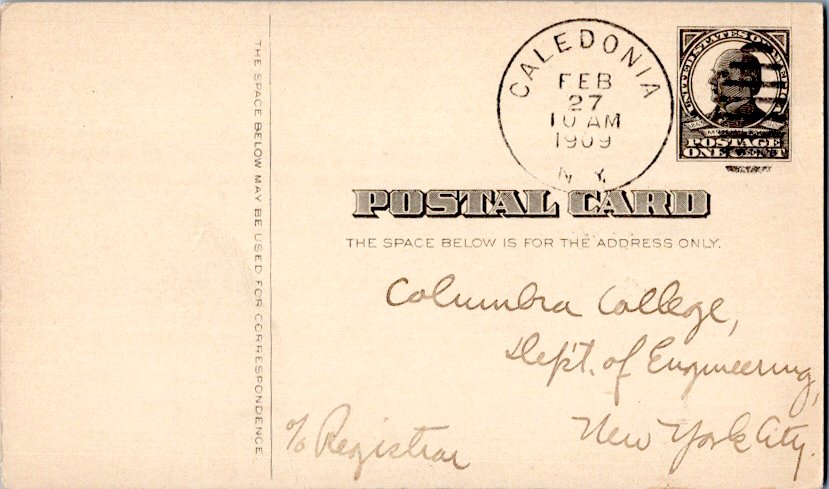 THE SPACE BELOW MAY BE USED FOR CORRESPONDENCE.
CALEDONIA
FEB
27
10 AM
1909
N.Y.
UNITED STATES OF AMERICA
POSTAGE
ONE CENT
POSTAL CARD
THE SPACE BELOW IS FOR THE ADDRESS ONLY.
Columbia College,
Dep't. of Engineering,
New York City.
c/o Registrar